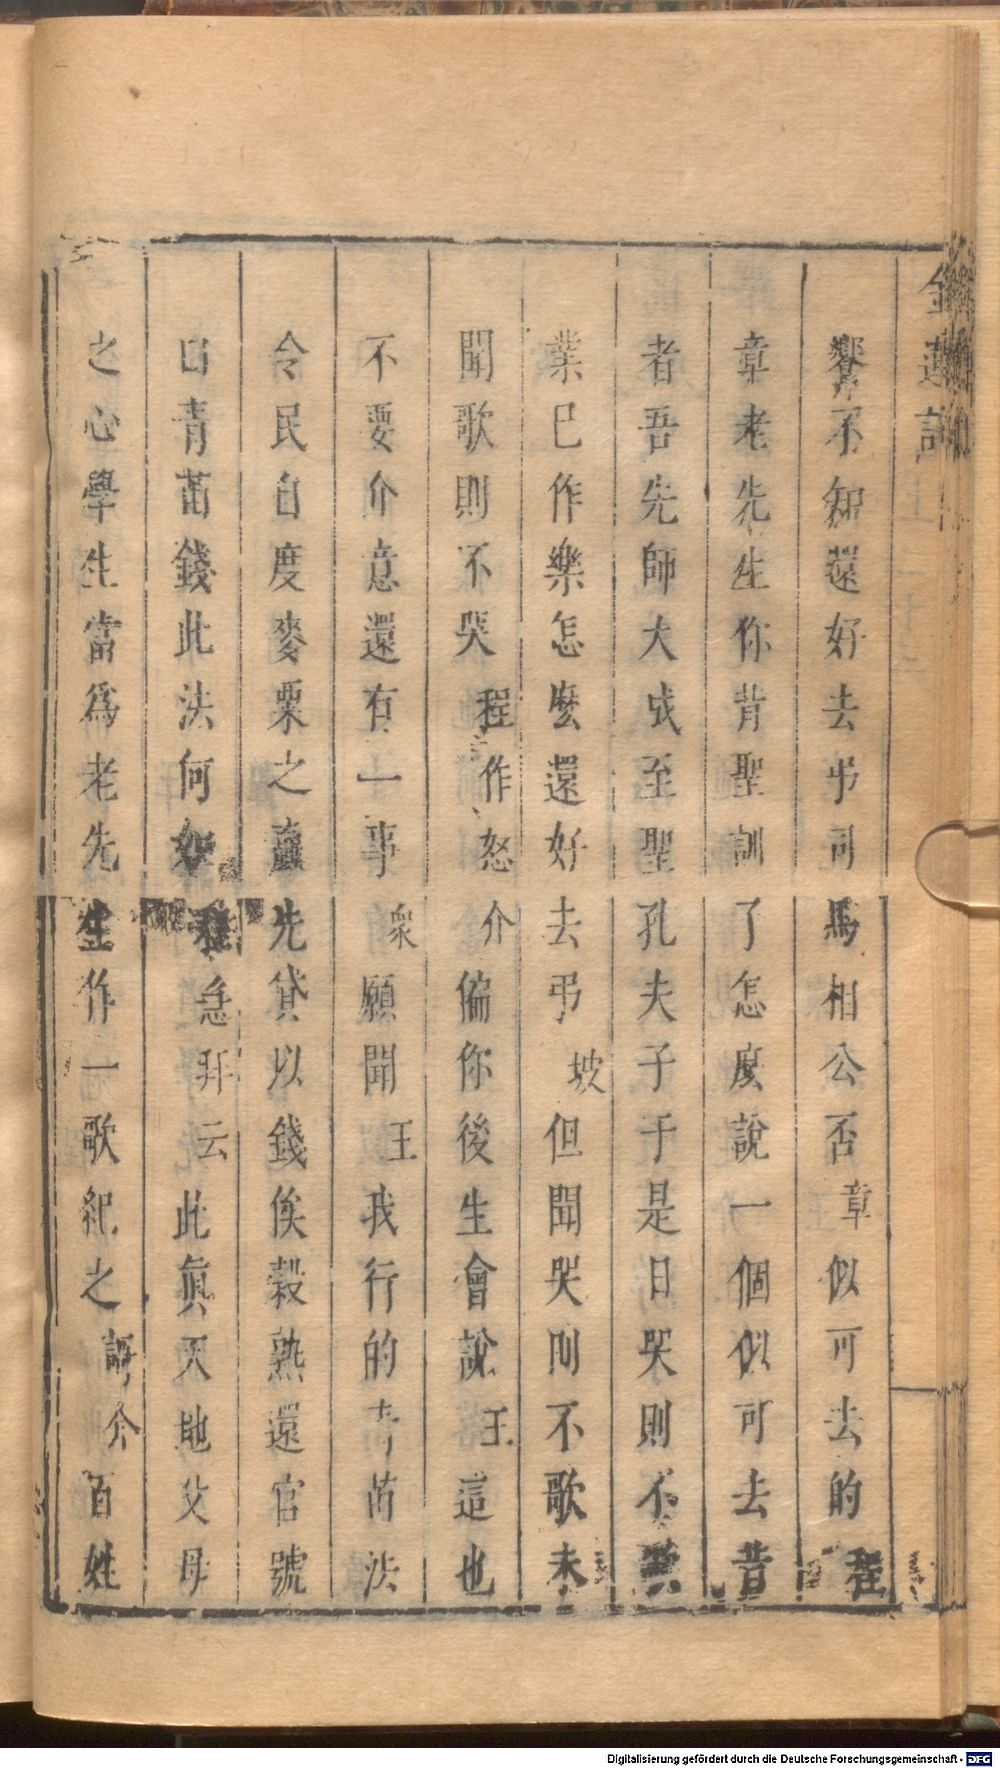 金蓮記
響不知還好去弔司馬相公否章似可去的程
章老先生你昔聖訓了怎麼說一個似可去昔
者吾先師大成至聖孔夫子于是日哭則不
業已作樂怎麼還好去弔坡但聞哭則不歌未
聞歌則不哭程作怒介偏你後生會說王這也
不要介意還有一事衆願聞王我行的青苗法
令民自度麥粟之贏先貸以錢俟穀熟還官號
曰青苗錢此法何如程急拜云此真天地父母
之心學生當為老先生作一歌紀之謌介百姓
Digitalisierung gefördert durch die Deutsche Forschungsgemeinschaft - DFG